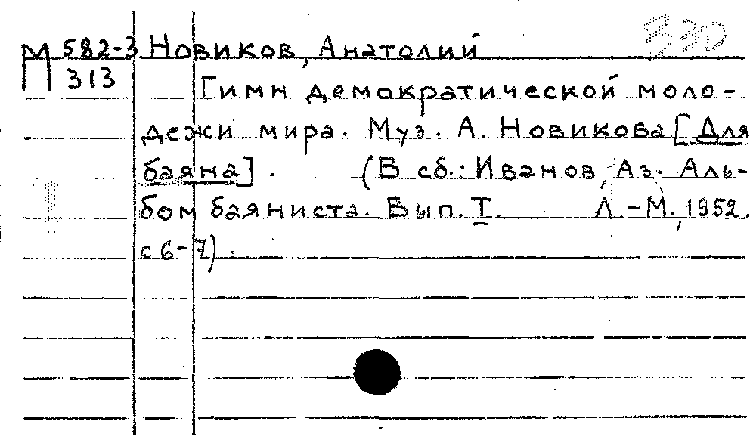 М 582-3 Новиков, Анатолий
П 313 Гимн демократической моло-
дежи мира. Муз. А. Новикова [Для
баяна]. (В сб.: Иванов, Аз. Аль-
бом баяниста. Вып. I. Л.-М., 1952.
с 6-7).